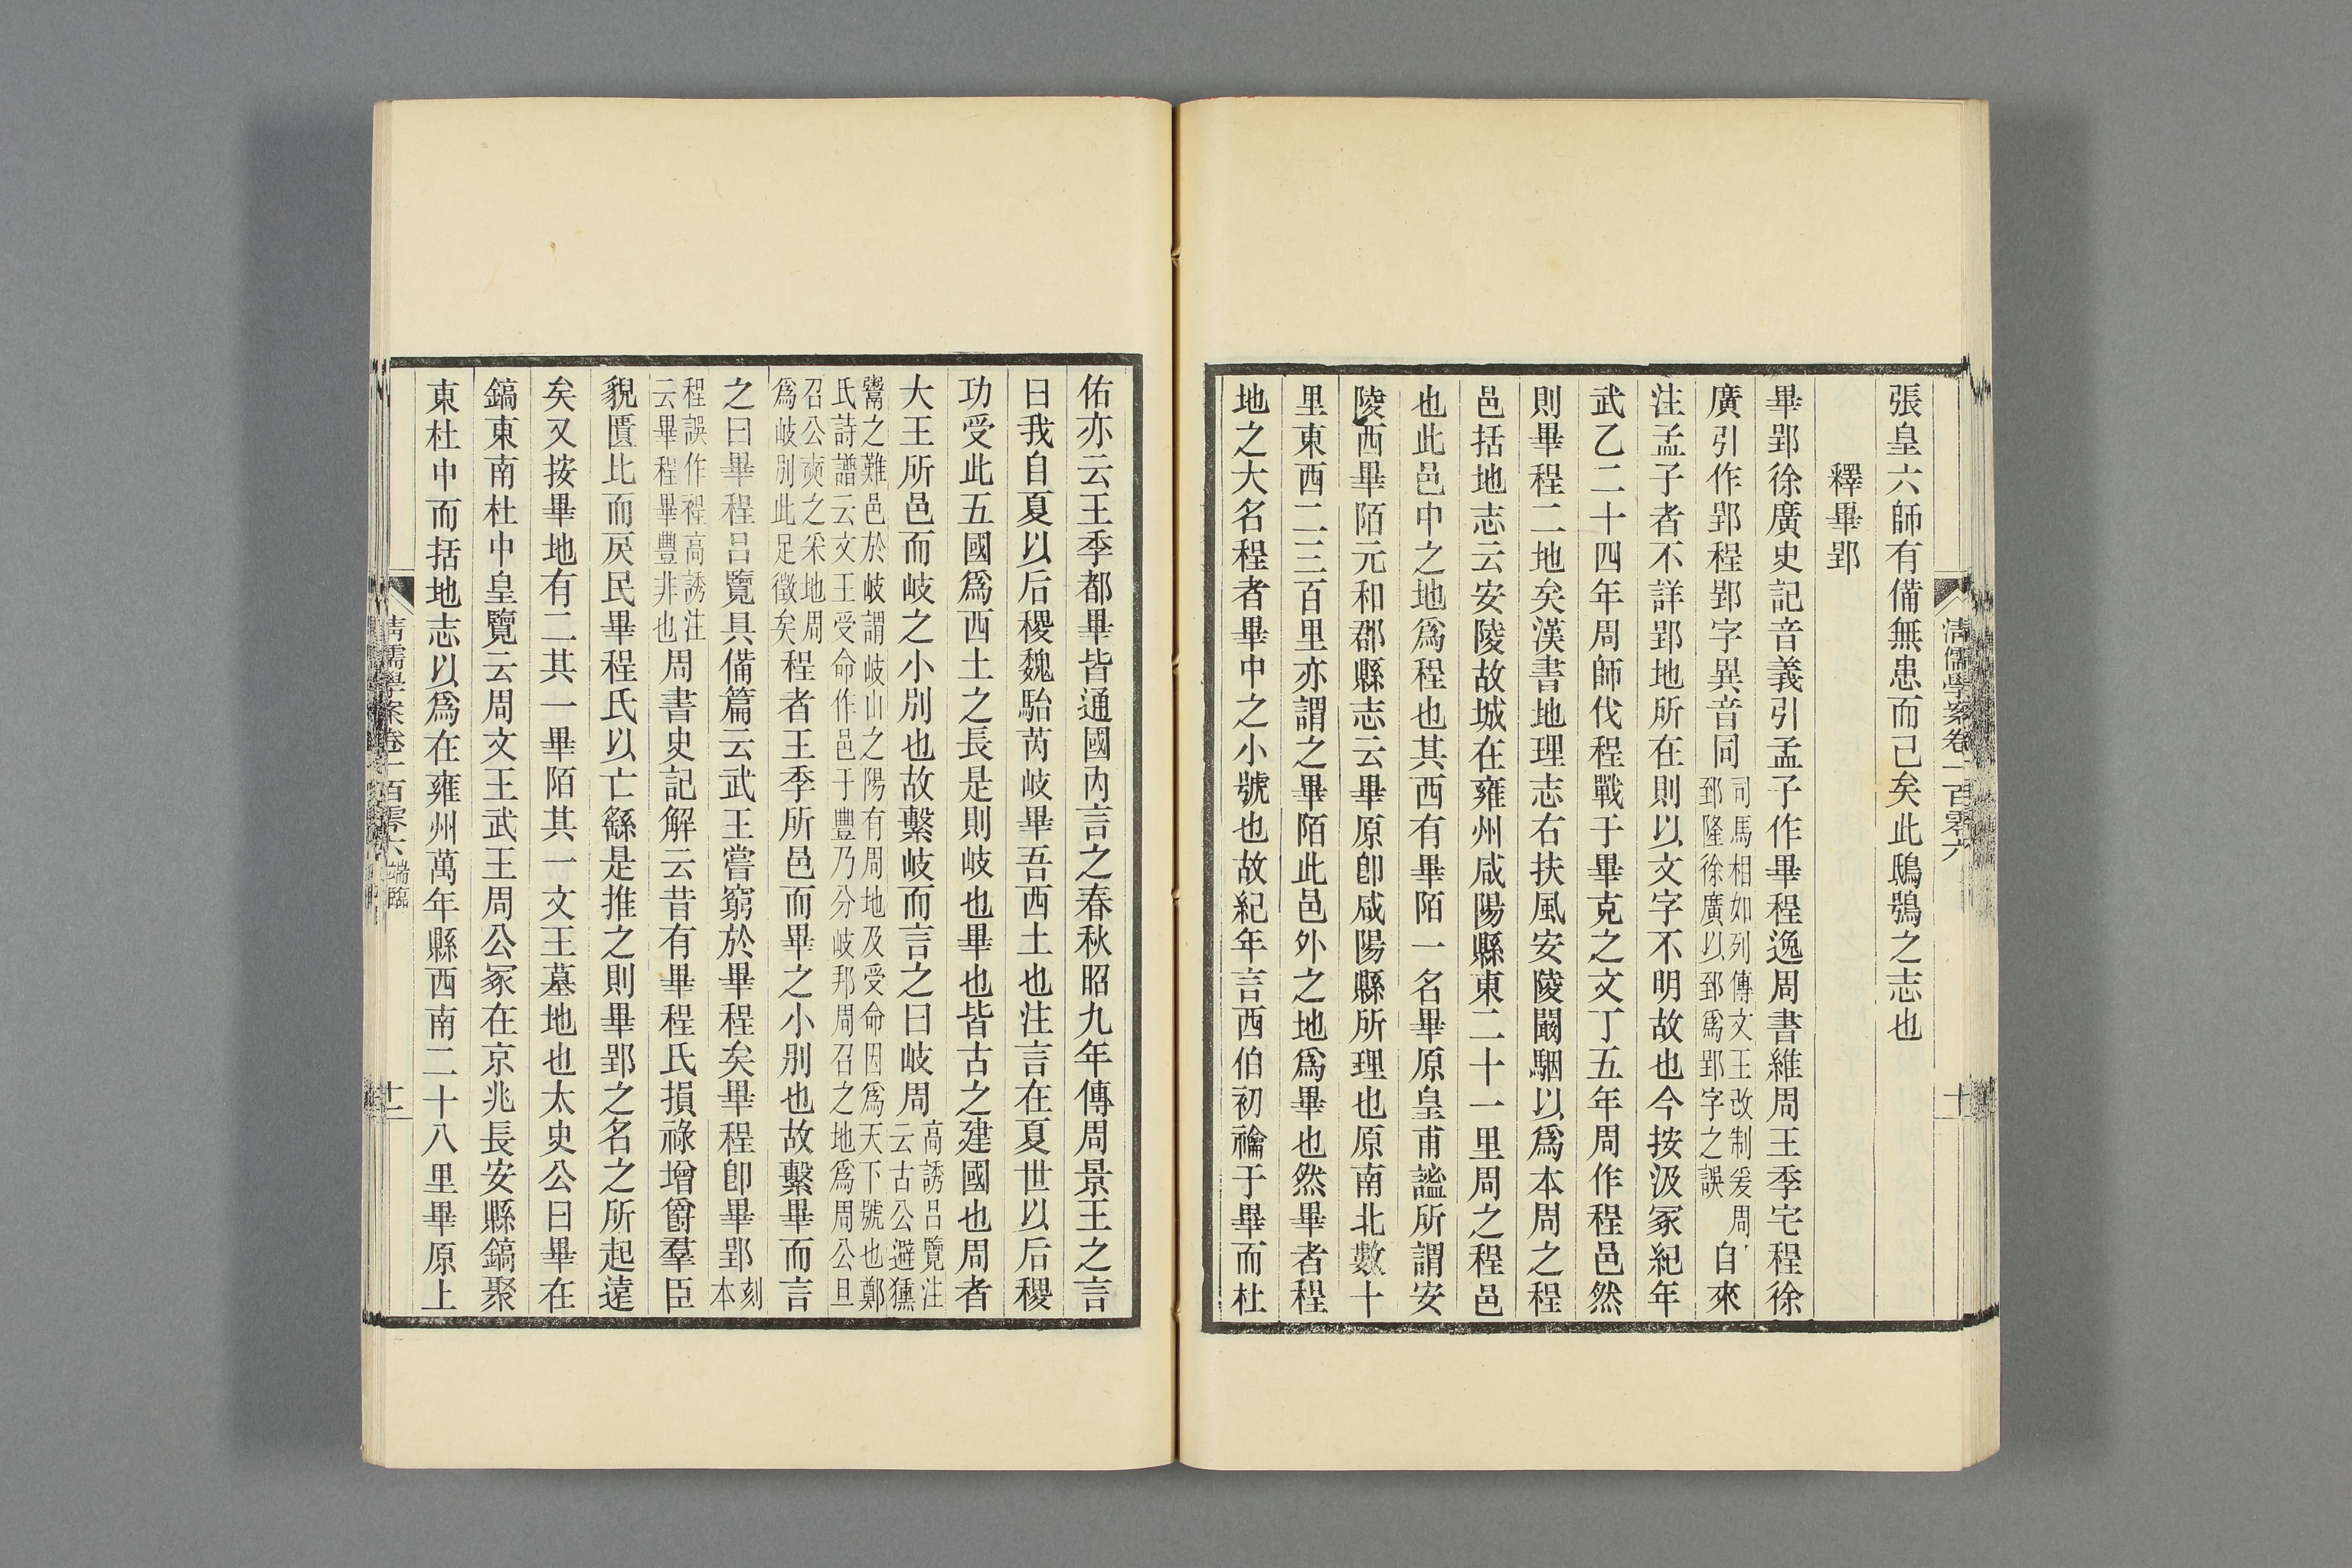 清儒學案卷一百零六
十
張皇六師有備無患而己矣此鴟鴞之志也
釋畢郢
畢郢徐廣史記音義引孟子作畢程逸周書維周王季宅程徐
廣引作郢程郢字異音同司馬相如列傳文王改制爰周郅隆徐廣以郅爲郢字之誤自來
注孟子者不詳郢地所在則以文字不明故也今按汲冢紀年
武乙二十四年周師伐程戰于畢克之文丁五年周作程邑然
則畢程二地矣漢書地理志右扶風安陵闞駰以爲本周之程
邑括地志云安陵故城在雍州咸陽縣東二十一里周之程邑
也此邑中之地爲程也其西有畢陌一名畢原皇甫謐所謂安
陵西畢陌元和郡縣志云畢原卽咸陽縣所理也原南北數十
里東西二三百里亦謂之畢陌此邑外之地爲畢也然畢者程
地之大名程者畢中之小號也故紀年言西伯初禴于畢而杜
佑亦云王季都畢皆通國內言之春秋昭九年傳周景王之言
曰我自夏以后稷魏駘芮岐畢吾西土也注言在夏世以后稷
功受此五國爲西土之長是則岐也畢也皆古之建國也周者
大王所邑而岐之小別也故繫岐而言之曰岐周高誘呂覽注云古公避獯
鬻之難邑於岐謂岐山之陽有周地及受命因爲天下號也鄭氏詩譜云文王受命作邑于豐乃分岐邦周召之地爲周公旦
召公奭之采地周爲岐別此足徵矣程者王季所邑而畢之小別也故繫畢而言
之曰畢程呂覽具備篇云武王嘗窮於畢程矣畢程卽畢郢刻本
程誤作裎高誘注云畢程畢豐非也周書史記解云昔有畢程氏損祿增爵羣臣
貌匱比而戾民畢程氏以亡繇是推之則畢郢之名之所起遠
矣又按畢地有二其一畢陌其一文王墓地也太史公曰畢在
鎬東南杜中皇覽云周文王武王周公冢在京兆長安縣鎬聚
東杜中而括地志以爲在雍州萬年縣西南二十八里畢原上
清儒學案卷一百零六 端臨
十一